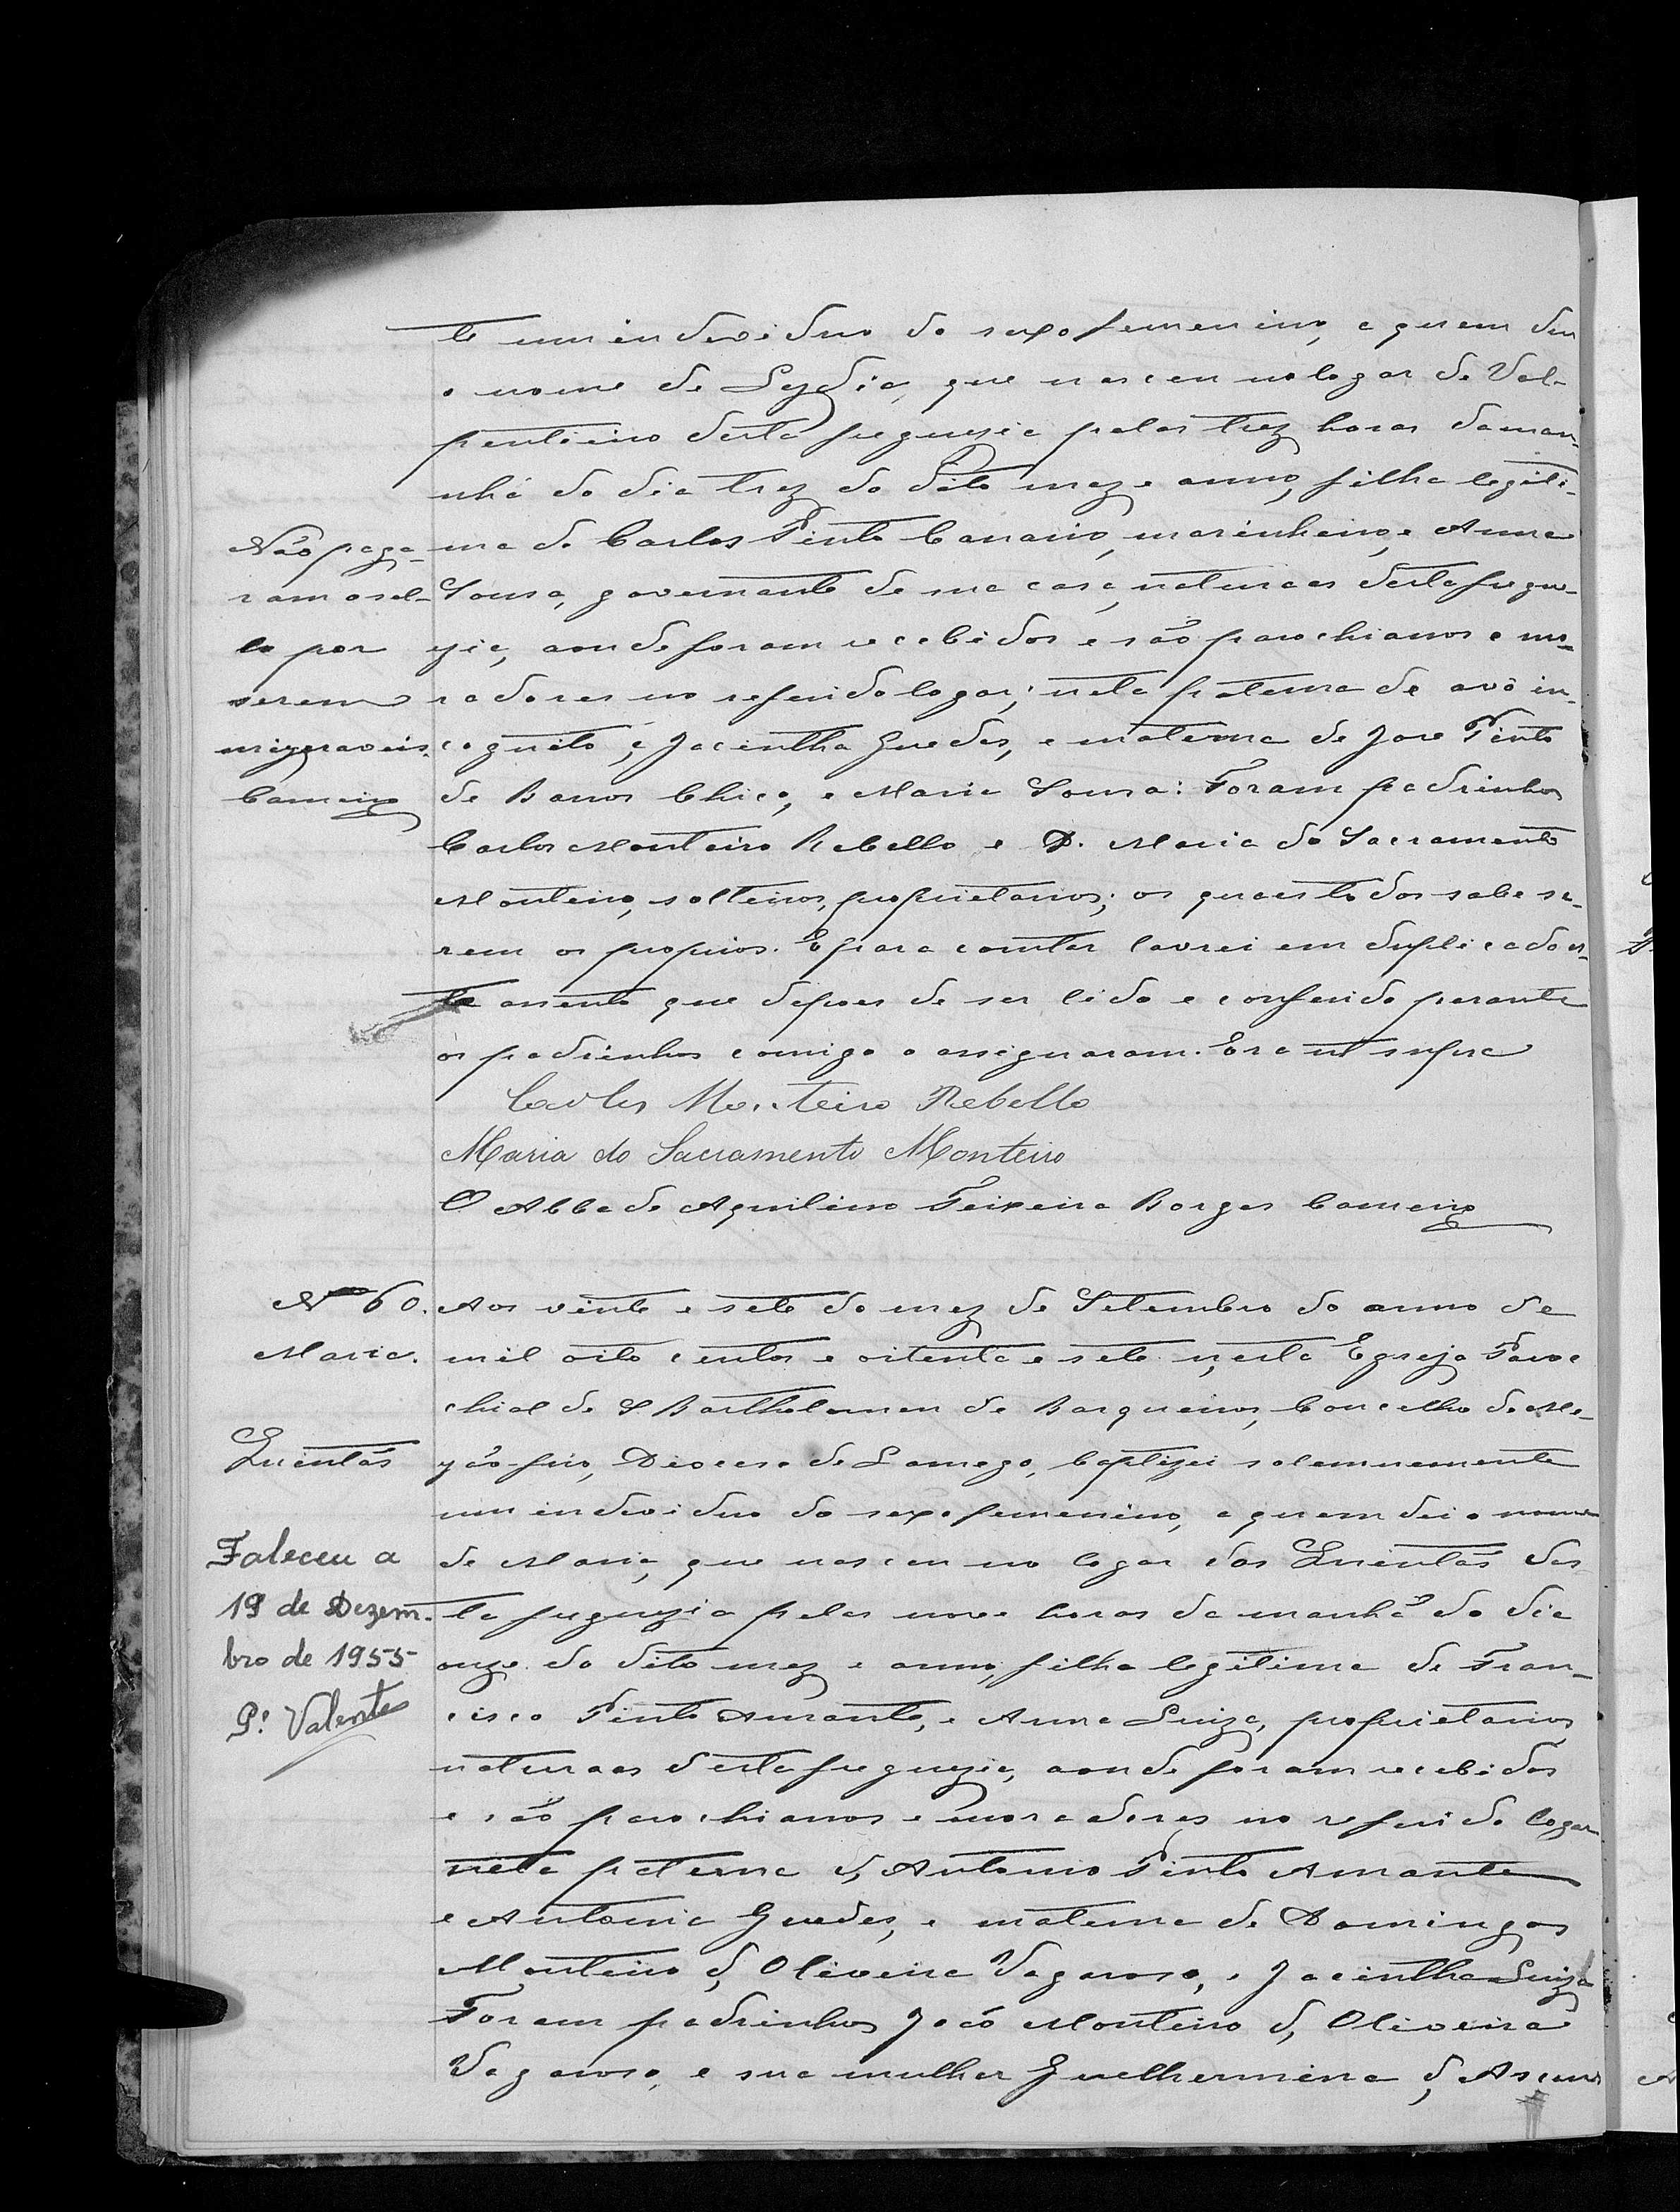 te um individuo do sexo femenino, a quem dei
o nome de Lydia, que nasceu no logar de Val-
penteiro desta freguezia pelas trez horas da man-
nhã do dia trez do dito mez e anno, filha legiti-
Não paga- ma de Carlos Pinto Canario, marinheiro, e Anna
ram o sel- Sousa, governante de sua casa, naturaes desta fregue-
lo por zia, aonde foram recebidos e são parochianos e mo-
serem radores no referido logar; neta paterna de avô in-
mizeraveis. cognito, e Jacintha Guedes, e materna de José Pinto
Carneiro de Barros Chico, e Maria Sousa: Foram padrinhos
Carlos Monteiro Rebello e D. Maria do Sacramento
Monteiro, solteiros, proprietarios; os quaes todos sabe se-
rem os proprios. E para constar lavrei em duplicado es-
te assento que depois de ser lido e conferido perante
os padrinhos comigo o assignaram. Era ut supra
Carlos Monteiro Rebello
Maria do Sacramento Monteiro
O Abbade Aquilino Teixeira Borges Carneiro
Nº 60. Aos vinte e sete do mez de Setembro do anno de
Maria. mil oito centos e oitenta e sete nesta Egreja Paro-
chial de S Bartholomeu de Barqueiros, Concelho de Me-
Quintãs zão-frio, Diocese de Lamego, baptizei solemnemente
um individuo do sexo femenino, a quem dei o nome
Faleceu a de Maria, que nasceu no logar das Quintãs des-
19 de Dezem- ta freguezia pelas nove horas da manhã do dia
bro de 1955 onze do dito mez e anno, filha legitima de Fran-
P.e Valente cisco Pinto Amante, e Anna Luiza, proprietarios
naturaes desta freguezia, aonde foram recebidos
e são parochianos e moradores no referido logar
neta paterna de Antonio Pinto Amante
e Antonia Guedes, e materna de Domingos
Monteiro de Oliveira Vagaroso, e Jacintha Luiza
Foram padrinhos José Monteiro de Oliveira
Vagaroso, e sua mulher Guelhermina de Ascen